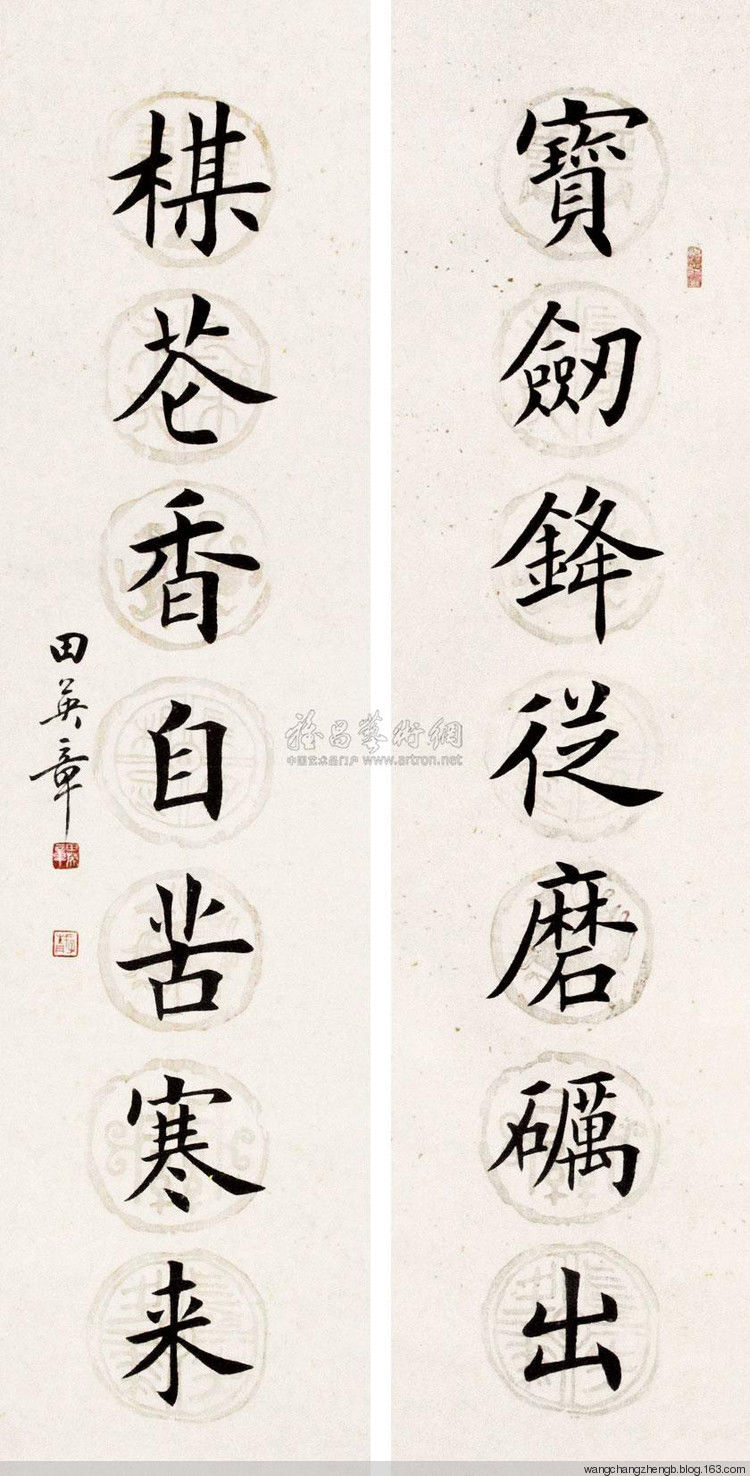 寶劒鋒従磨礪出
楳芲香自苦寒来
田英章
雅昌藝術網
中国艺术品门户 www.artron.net
wangchangzhengb.blog.163.com